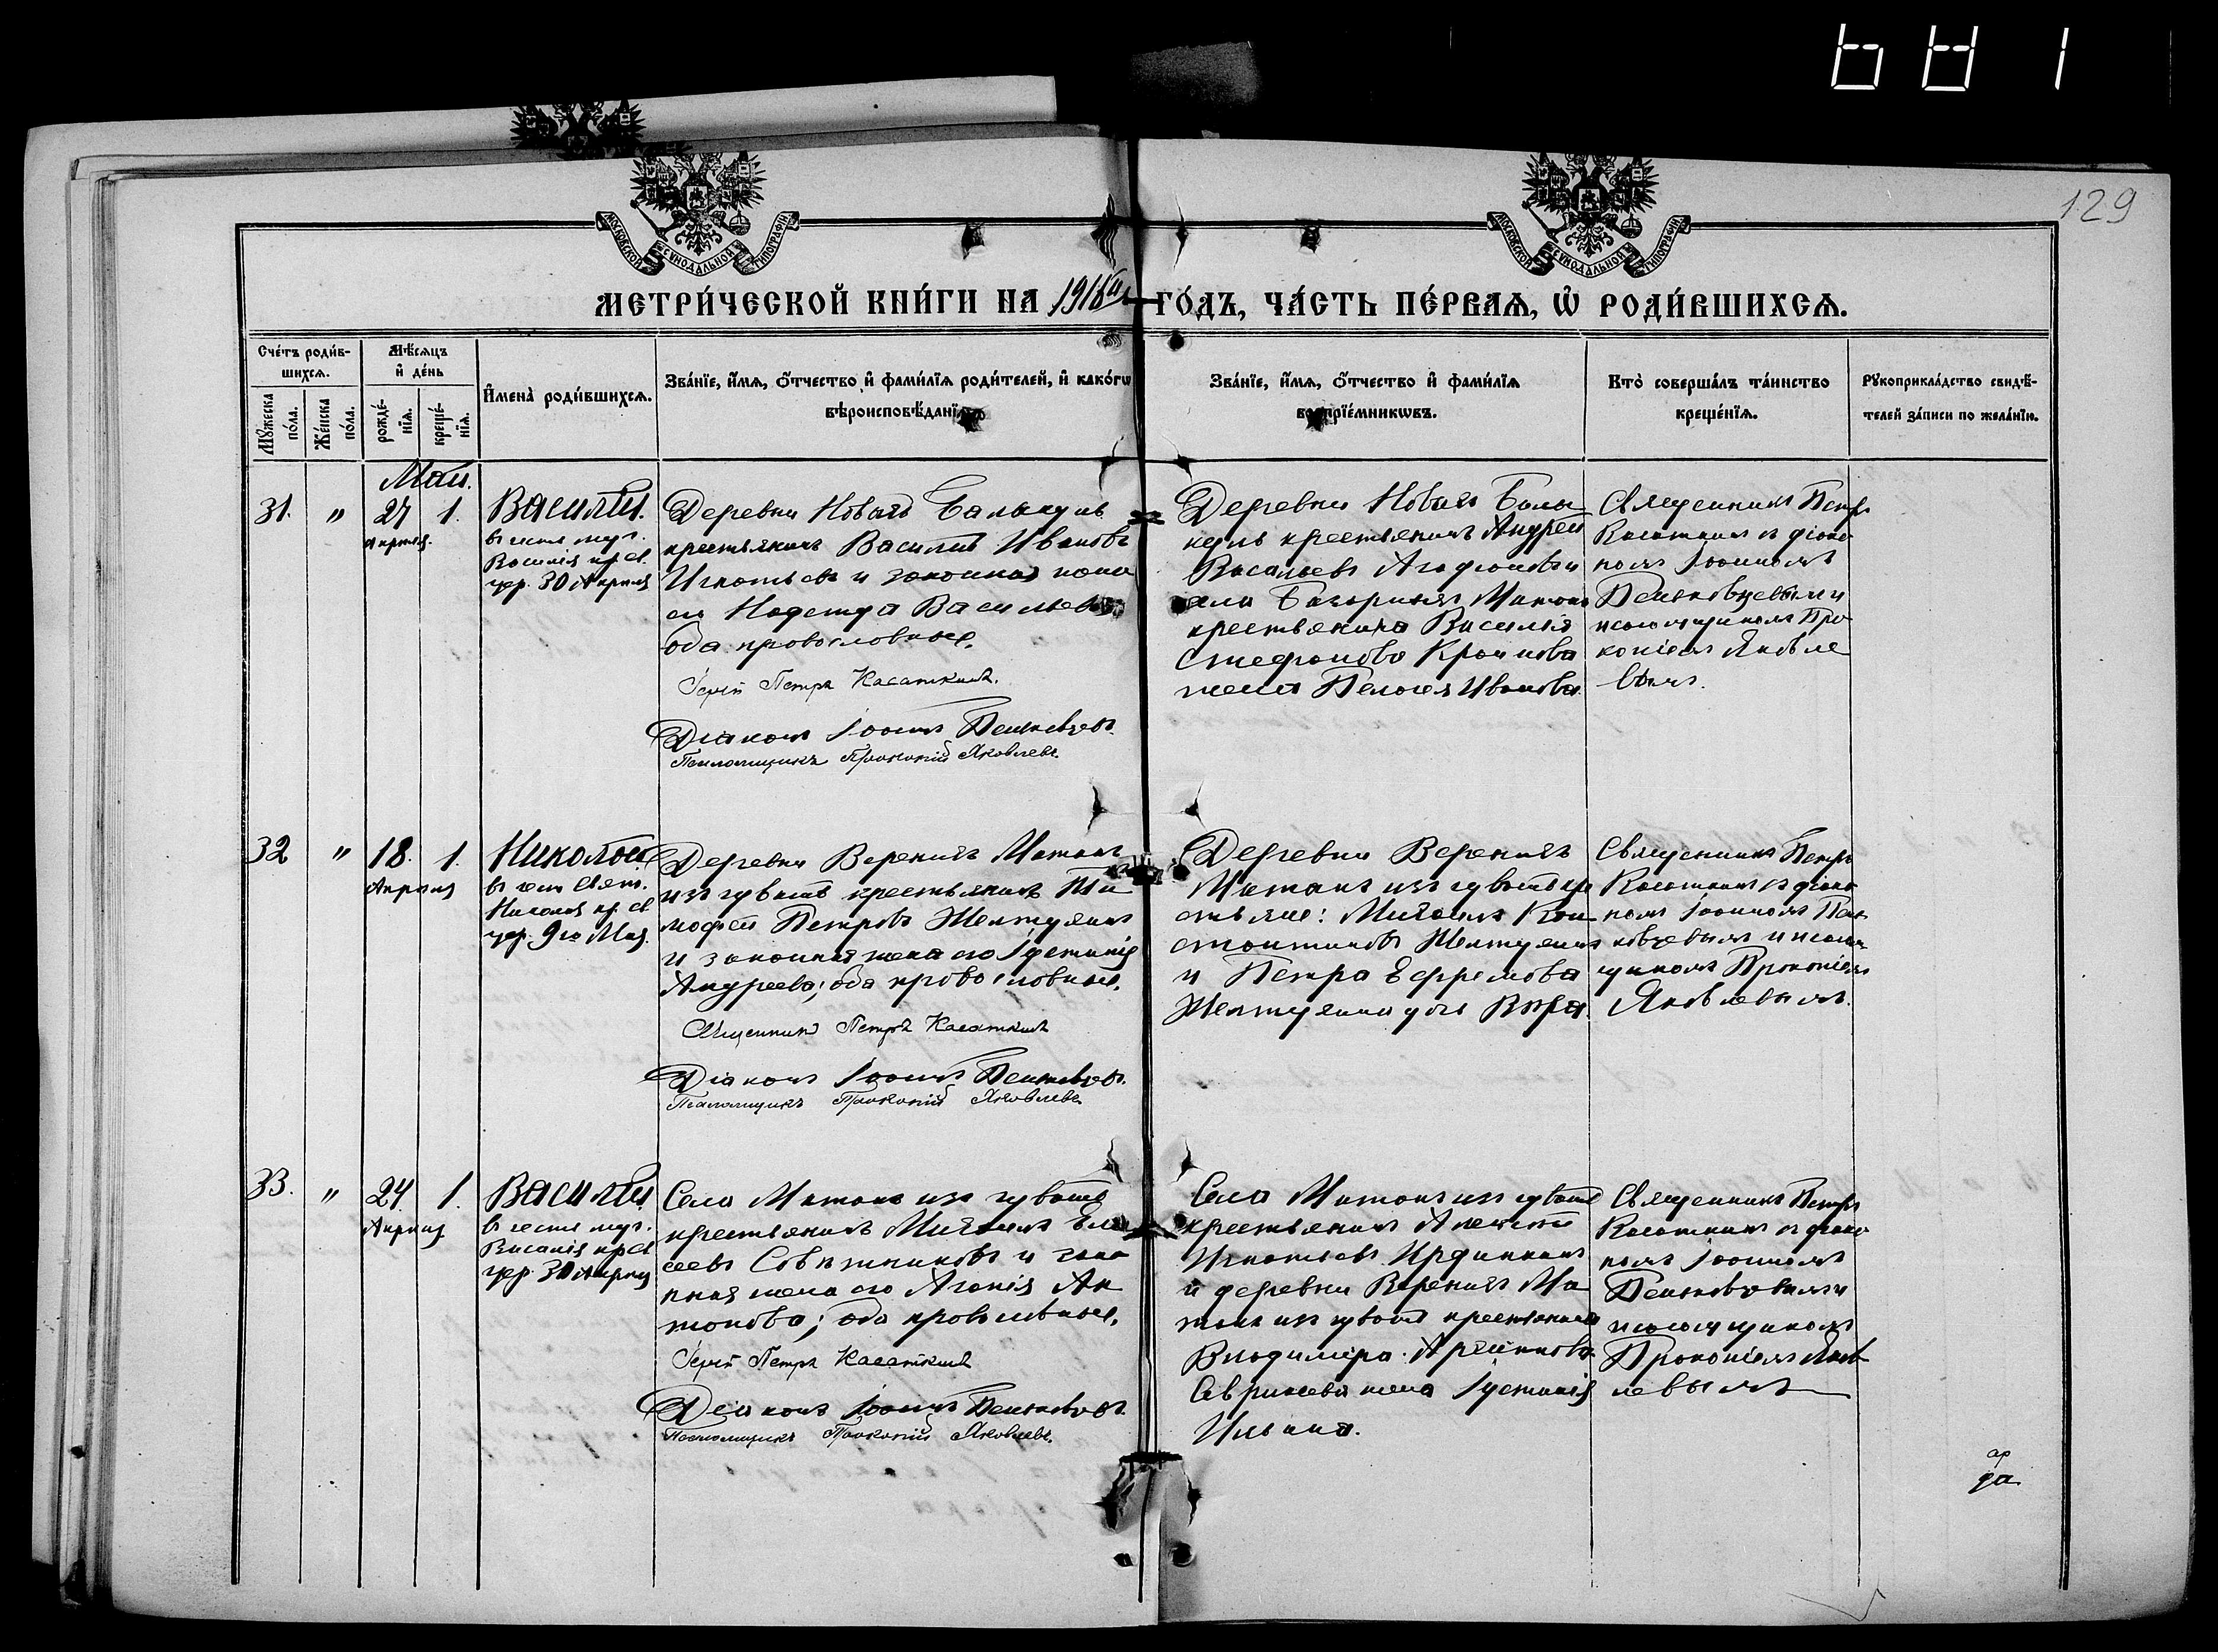 681
129
МОСКОВСКОЙ СѴНОДАЛЬНОЙ ТИПОГРАФІИ
МОСКОВСКОЙ СѴНОДАЛЬНОЙ ТИПОГРАФІИ
МЕТРИ́ЧЕСКОЙ КНИ́ГИ НА 1918й ГО́ДЪ, ЧА́СТЬ ПЕ́РВАѦ, Ѡ҆ РОДИ́ВШИХСѦ.
Сче́тъ роди́в-
шихсѧ.
Мꙋ́жеска по́ла.
Же́нска по́ла.
Мѣ́сѧцъ
и҆ де́нь
рожде́-
нїѧ.
креще́-
нїѧ.
И҆мена̀ роди́вшихсѧ.
Зва́нїе, и҆́мѧ, ѻ҆́тчество и҆ фами́лїѧ роди́телей, и҆ како́гѡ
вѣроисповѣ́данїѧ
Зва́нїе, и҆́мѧ, ѻ҆́тчество и҆ фами́лїѧ
воспрїе́мникѡвъ.
Кто̀ соверша́лъ та́инство
креще́нїѧ.
Рꙋкоприкла́дство свидѣ́-
телей за́писи по жела́нїю.
Май.
31. " 27 1. Василій.
Апреля.
въ честь муч.
Василія пр. св.
цер. 30 Апреля
Деревни Новая
крестьянинъ Василій Ивановъ
Игнатьевъ и законная жена
его Надежда Васильева
оба православные.
Іерей Петръ Касаткинъ.
Діаконъ Іоаннъ Пеньковцевъ.
Псаломщикъ Прокопій Яковлевъ.
Деревни Новая
крестьянинъ Андрей
Васильевъ Агафоновъ и
села
крестьянина Василія
Стефанова
жена Пелагея Иванова.
Священникъ Петръ
Касаткинъ съ діако
номъ Іоанномъ
Пеньковцевымъ и
псаломщикомъ Про
копіемъ Яковле
вымъ.
32 " 18. 1. Николай
Апреля
въ честь Свят.
Николая пр. св.
цер. 9го Мая.
Деревни Верхнихъ Матакъ
изъ чувашъ крестьянинъ Ти
мофей Петровъ
и законная жена его Іустинія
Андреева; оба православные.
Священникъ Петръ Касаткинъ
Діаконъ Іоаннъ Пеньковцевъ.
Псаломщикъ Прокопій Яковлевъ
Деревни Верхнихъ
Матакъ изъ чувашъ кре
стьяне: Михаилъ Кон
стантиновъ
и Петра Ефремова
дочь Вѣра.
Священникъ Петръ
Касаткинъ съ діако
номъ Іоанномъ Пень
ковцевымъ и псалом
щикомъ Прокопіемъ
Яковлевымъ.
33. " 24. 1. Василій
Апреля
въ честь муч.
Василія пр. св.
цер. 30 Апреля
Села Матакъ изъ чувашъ
крестьянинъ Михаилъ Ели
сеевъ и зако
нная жена его Агапія Ан
тонова; оба православные.
Іерей Петръ Касаткинъ
Діаконъ Іоаннъ Пеньковцевъ.
Псаломщикъ Прокопій Яковлевъ.
Села Матакъ изъ чувашъ
крестьянинъ Алексѣй
Игнатьевъ
и деревни Верхнихъ Ма
такъ изъ чувашъ крестьянина
Владиміра
жена Іустинія
Ильина.
Священникъ Петръ
Касаткинъ съ діако
номъ Іоанномъ
Пеньковцевымъ и
псаломщикомъ
Прокопіемъ Яков
левымъ